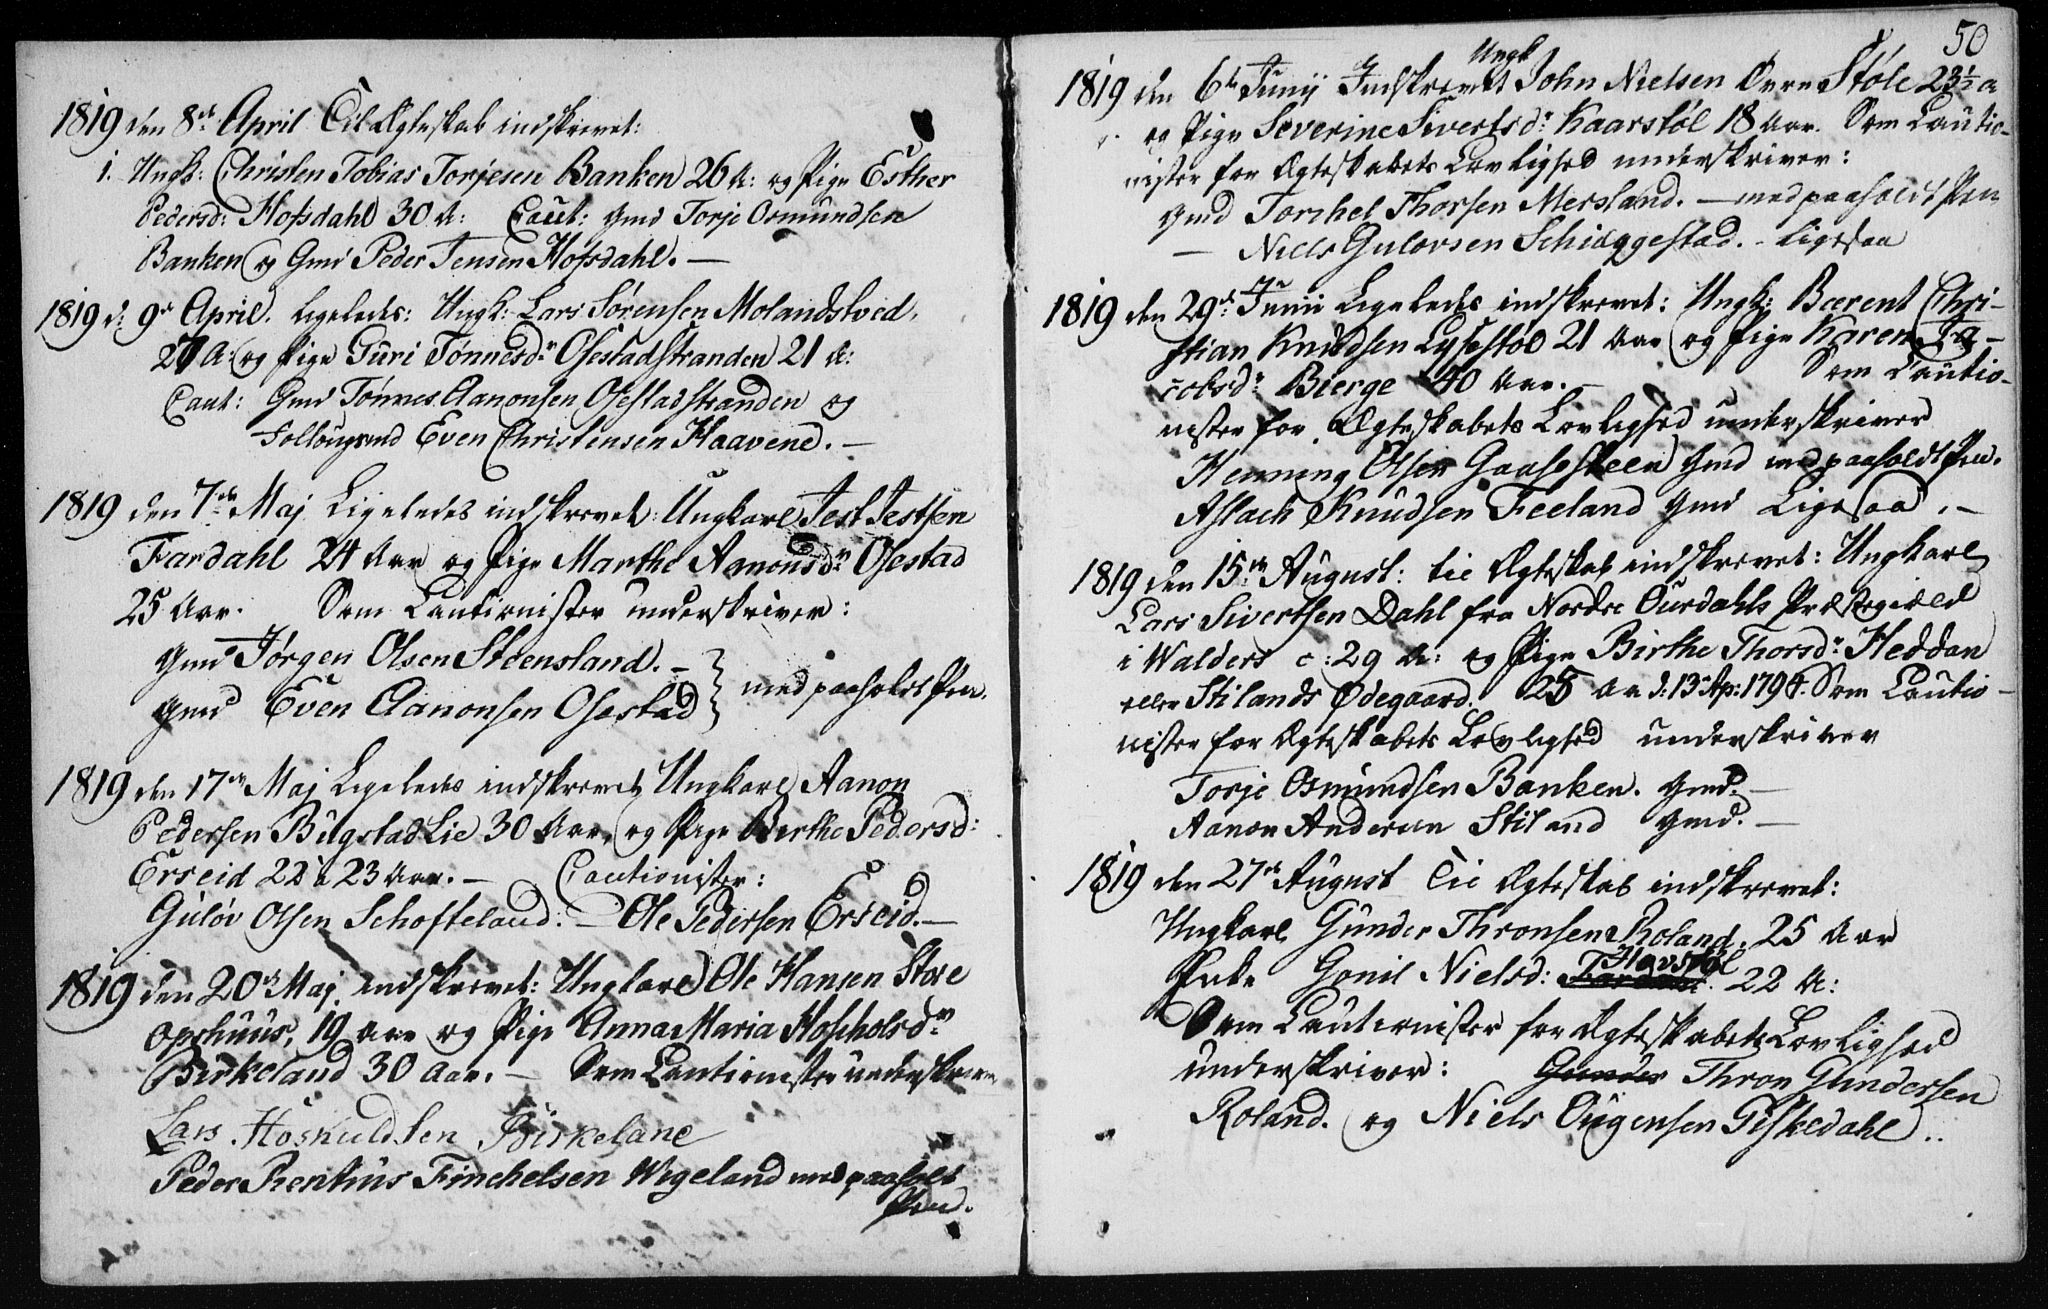 1819 den 8de April Til Ægteskab indskrevet:
1. Ungk: Christen Tobias Torjesen Banken 26 A: og Pige Esther
Pedersd: Hofsdahl 30 A: Caut: Gmd Torje Osmundsen
Banken og Gmd Peder Jensen Hofsdahl. —
1819 d: 9de April. Ligeledes: Ungk: Lars Sørensen Molandsved.
27 A: og Pige Guri Tønnesdr Osestadstranden 21 A:
Caut: Gmd Tønnes Aanonsen Osestadstranden og
Even Christensen Haavene. —
1819 den 7de Maj Ligeledes indskrevet: Ungkarl Jest Jestsen
Fardahl 24 Aar og Pige Marthe Aanonsdr Osestad
25 Aar. Som Cautionister underskriver:
Gmd Jørgen Olsen Steensland. —
Gmd Even Aanonsen Osestad } med paaholdt Pen.
1819 den 17de Maj Ligeledes indskrevet Ungkarl Aanon
Pedersen Bugstad Lie 30 Aar, og Pige Berthe Pedersd:
Erseid 22 a 23 Aar. — Cautionister:
Guløv Olsen Schofteland: — Ole Pedersen Erseid. —
1819 den 20de Maj indskrevet: Ungkarl Ole Hansen Store
Opshuus, 19 Aar og Pige Anna Maria Hoscholsdr
Birkeland 30 Aar. — Som Cautionister underskriver
Lars Hoskuldsen Birkeland
Peder Pentius Finchelsen Wegeland med paaholdt
Pen.
50
Ungk
1819 den 6te Junij Indskrevet John Nielsen Øvre Støle 23½ a
og Pige Severine Sivertsdr Kaarstøl 18 Aar. Som Cautio-
nister for Ægteskabets Lovlighed underskriver:
Gmd Torchel Thorsen Mersland. — med paaholdt Pen
— Niels Gulovsen Schiæggestad. - Ligesaa
1819 den 29de Junii Ligeledes indskrevet: Ungk: Bærent Chri-
stian Knudsen Lysestøl 21 Aar og Pige Karen Ja-
cobsdr Bierge 40 Aar. — Som Cautio-
nister for Ægteskabets Lovlighed underskriver
Henning Olsen Gaaseskeen Gmd med paaholdt Pen.
Aslach Knudsen Feeland Gmd Ligesaa. —
1819 den 15de August: til Ægteskab indskrevet: Ungkarl
Lars Sivertsen Dahl fra Nordre Ourdahls Præstegield
i Walders c: 29 A: og Pige Birthe Thorsdr Heddan
eller Stilands Ødegaard. 25 Aar d: 13 Ap: 1794. Som Cautio-
nister for Ægteskabets Lovlighed underskriver
Torje Osmundsen Banken. Gmd. —
Aanon Andersen Stiland Gmd. —
1819 den 27de August Til Ægteskab indskrevet:
Ungkarl Gunder Thronsen Roland. 25 Aar
Enke Gonil Nielsd: 22 A:
Som Cautionister for Ægteskabets Lovlighed
underskriver: Gunder Thron Gundersen
Roland. og Niels Ougensen Fiskedahl..